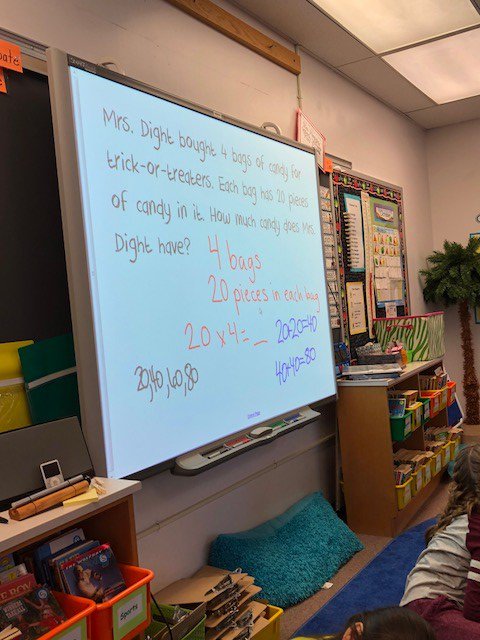 Mrs. Dight bought 4 bags of candy for
trick-or-treaters. Each bag has 20 pieces
of candy in it. How much candy does Mrs.
Dight have?
4 bags
20 pieces in each bag
20 x 4 = _
20+20=40
40+40=80
20,40,60,80
Sports